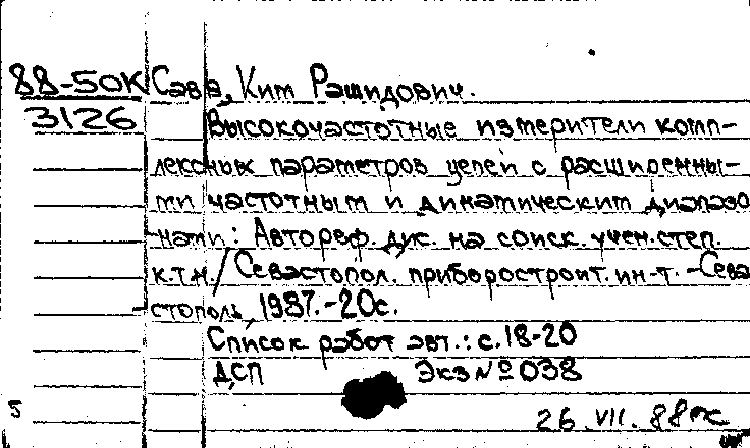 88-50К Савв, Ким Рашидович.
3126 Высокочастотные измерители комп-
лексных параметров цепей с расширенны-
ми частотным и динамическим диапазо
-нами: Автореф. дис. на соиск. учен. степ.
к.т.н./Севастопол. приборостроит. ин-т. -Сева
стополь, 1987.-20с.
Список работ авт.: с.18-20
ДСП Экз № 038
5 26.VII.88